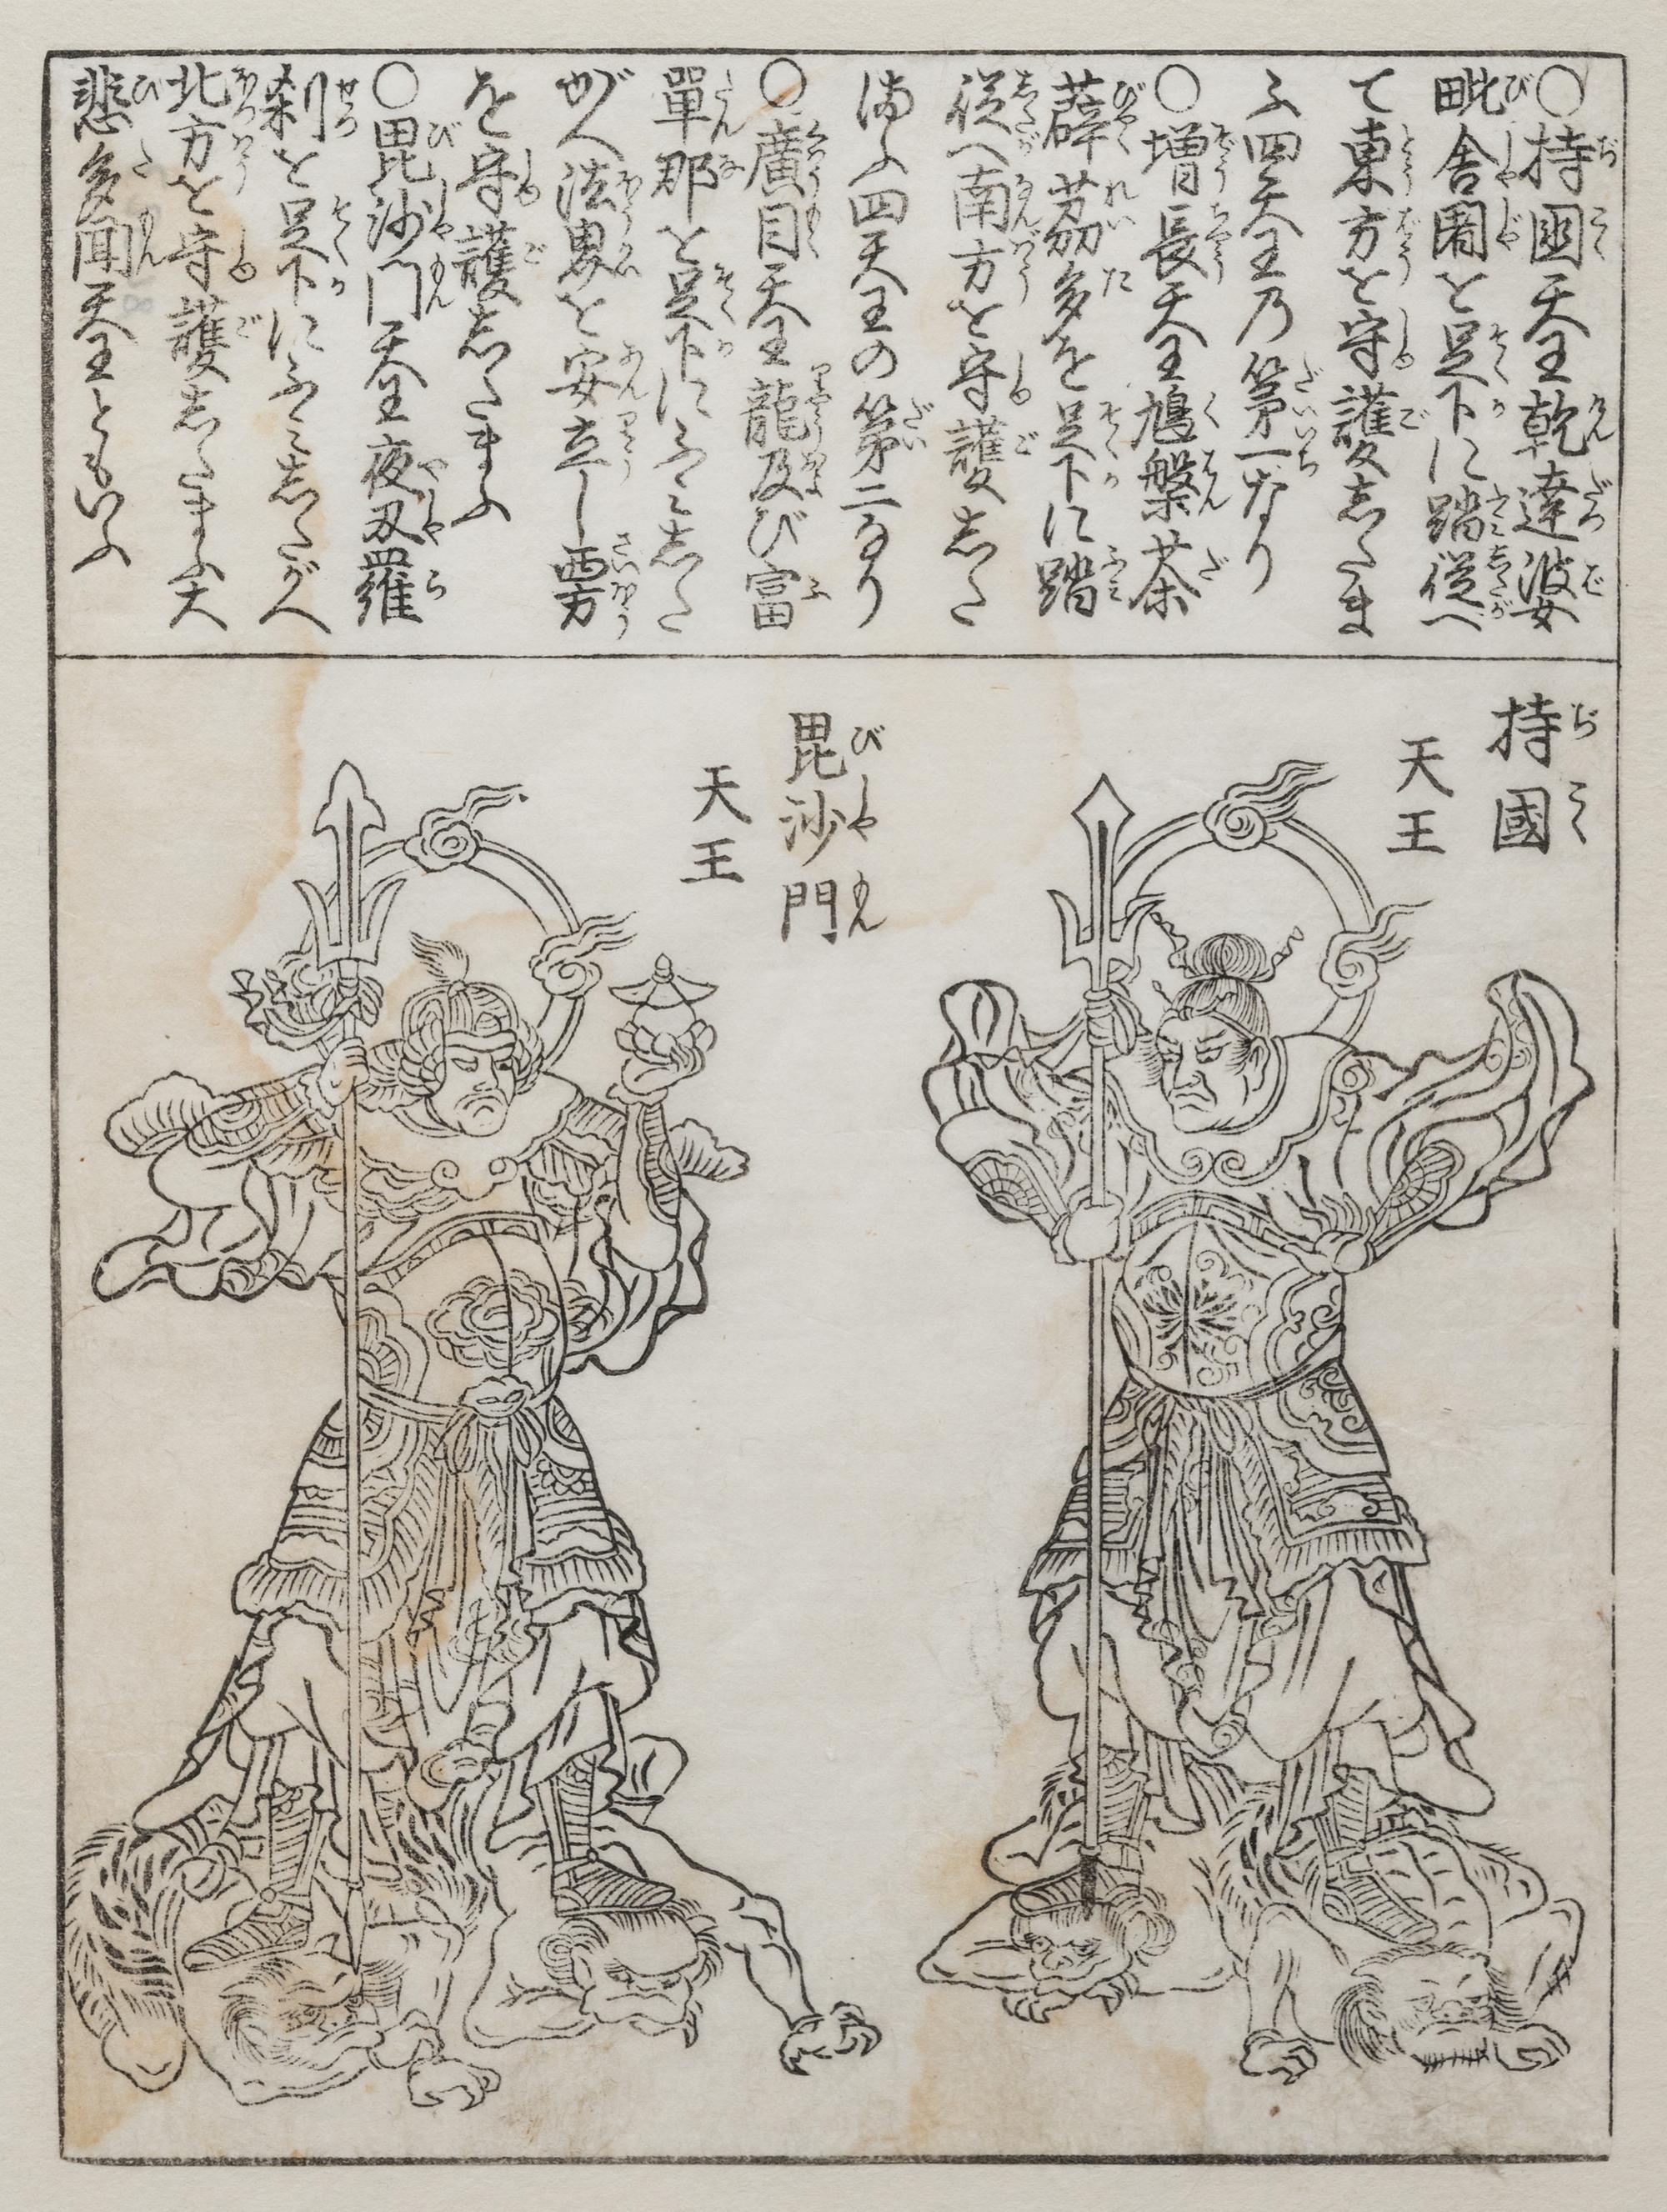 〇持國天王乾達婆
毗舎闍を足下に踏従へ
て東方を守護したま
ふ四天王乃第一なり
〇増長天王鳩槃荼
薜茘多を足下に踏
従へ南方を守護した
満ふ四天王の第二なり
〇廣目天王龍及び富
單那を足下にふミした
がへ法界を安立し西方
を守護したまふ
〇毘沙門天王夜叉羅
刹を足下にふミしたがへ
北方を守護したまふ大
悲多聞天王ともいふ
持國
天王
毘沙門
天王